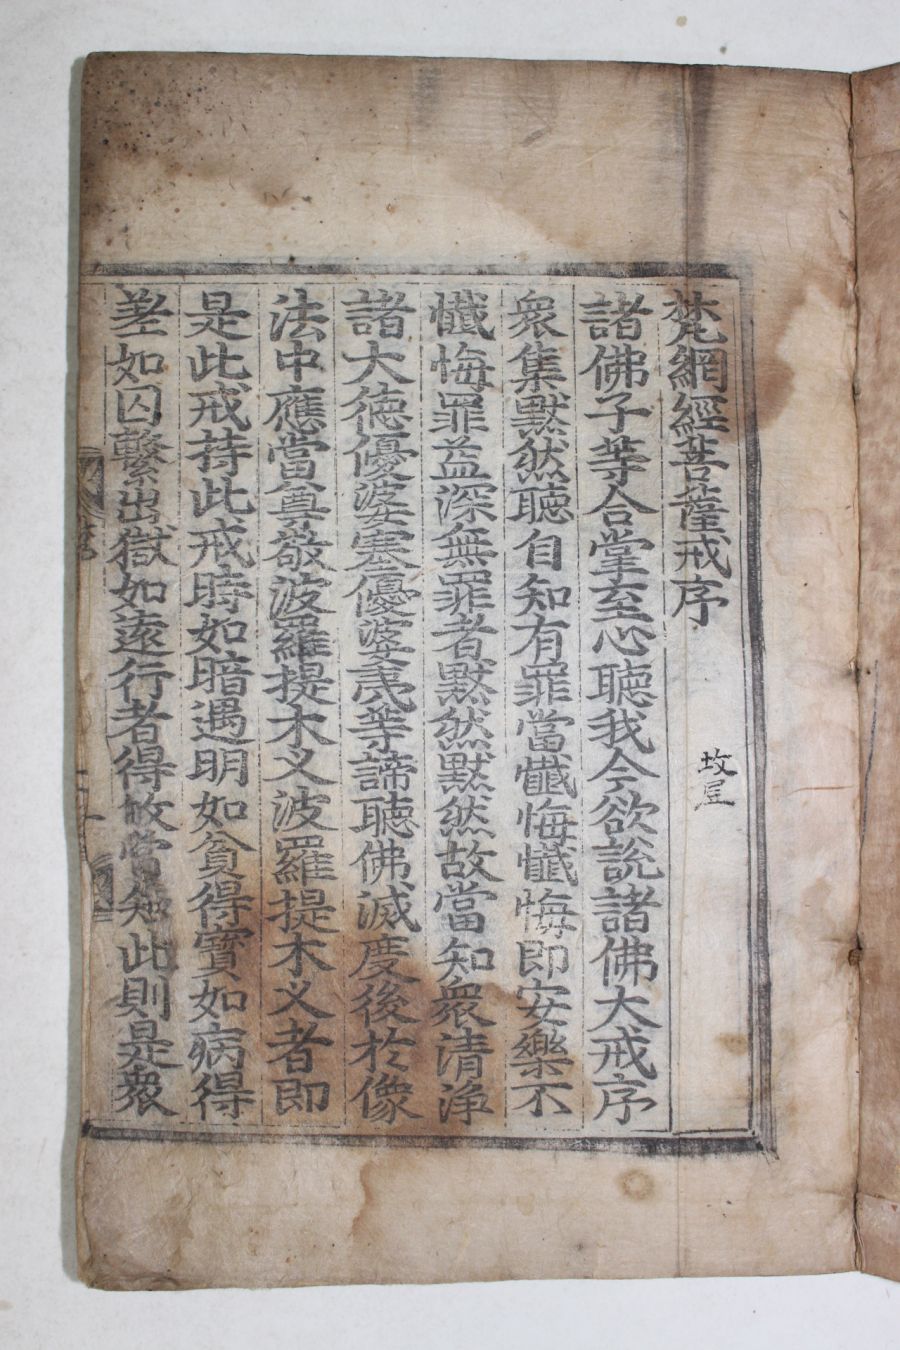 梵網經菩薩戒序
諸佛子等合掌至心聽我今欲說諸佛大戒序
衆集默然聽自知有罪當懺悔懺悔即安樂不
懺悔罪益深無罪者黙然黙然故當知衆清淨
諸大德優婆塞優婆夷等諦聽佛滅度後於像
法中應當尊敬波羅提木义波羅提木义者即
是此戒持此戒時如暗遇明如貧得寶如病得
差如囚繫出獄如遠行者得故當知此則是衆